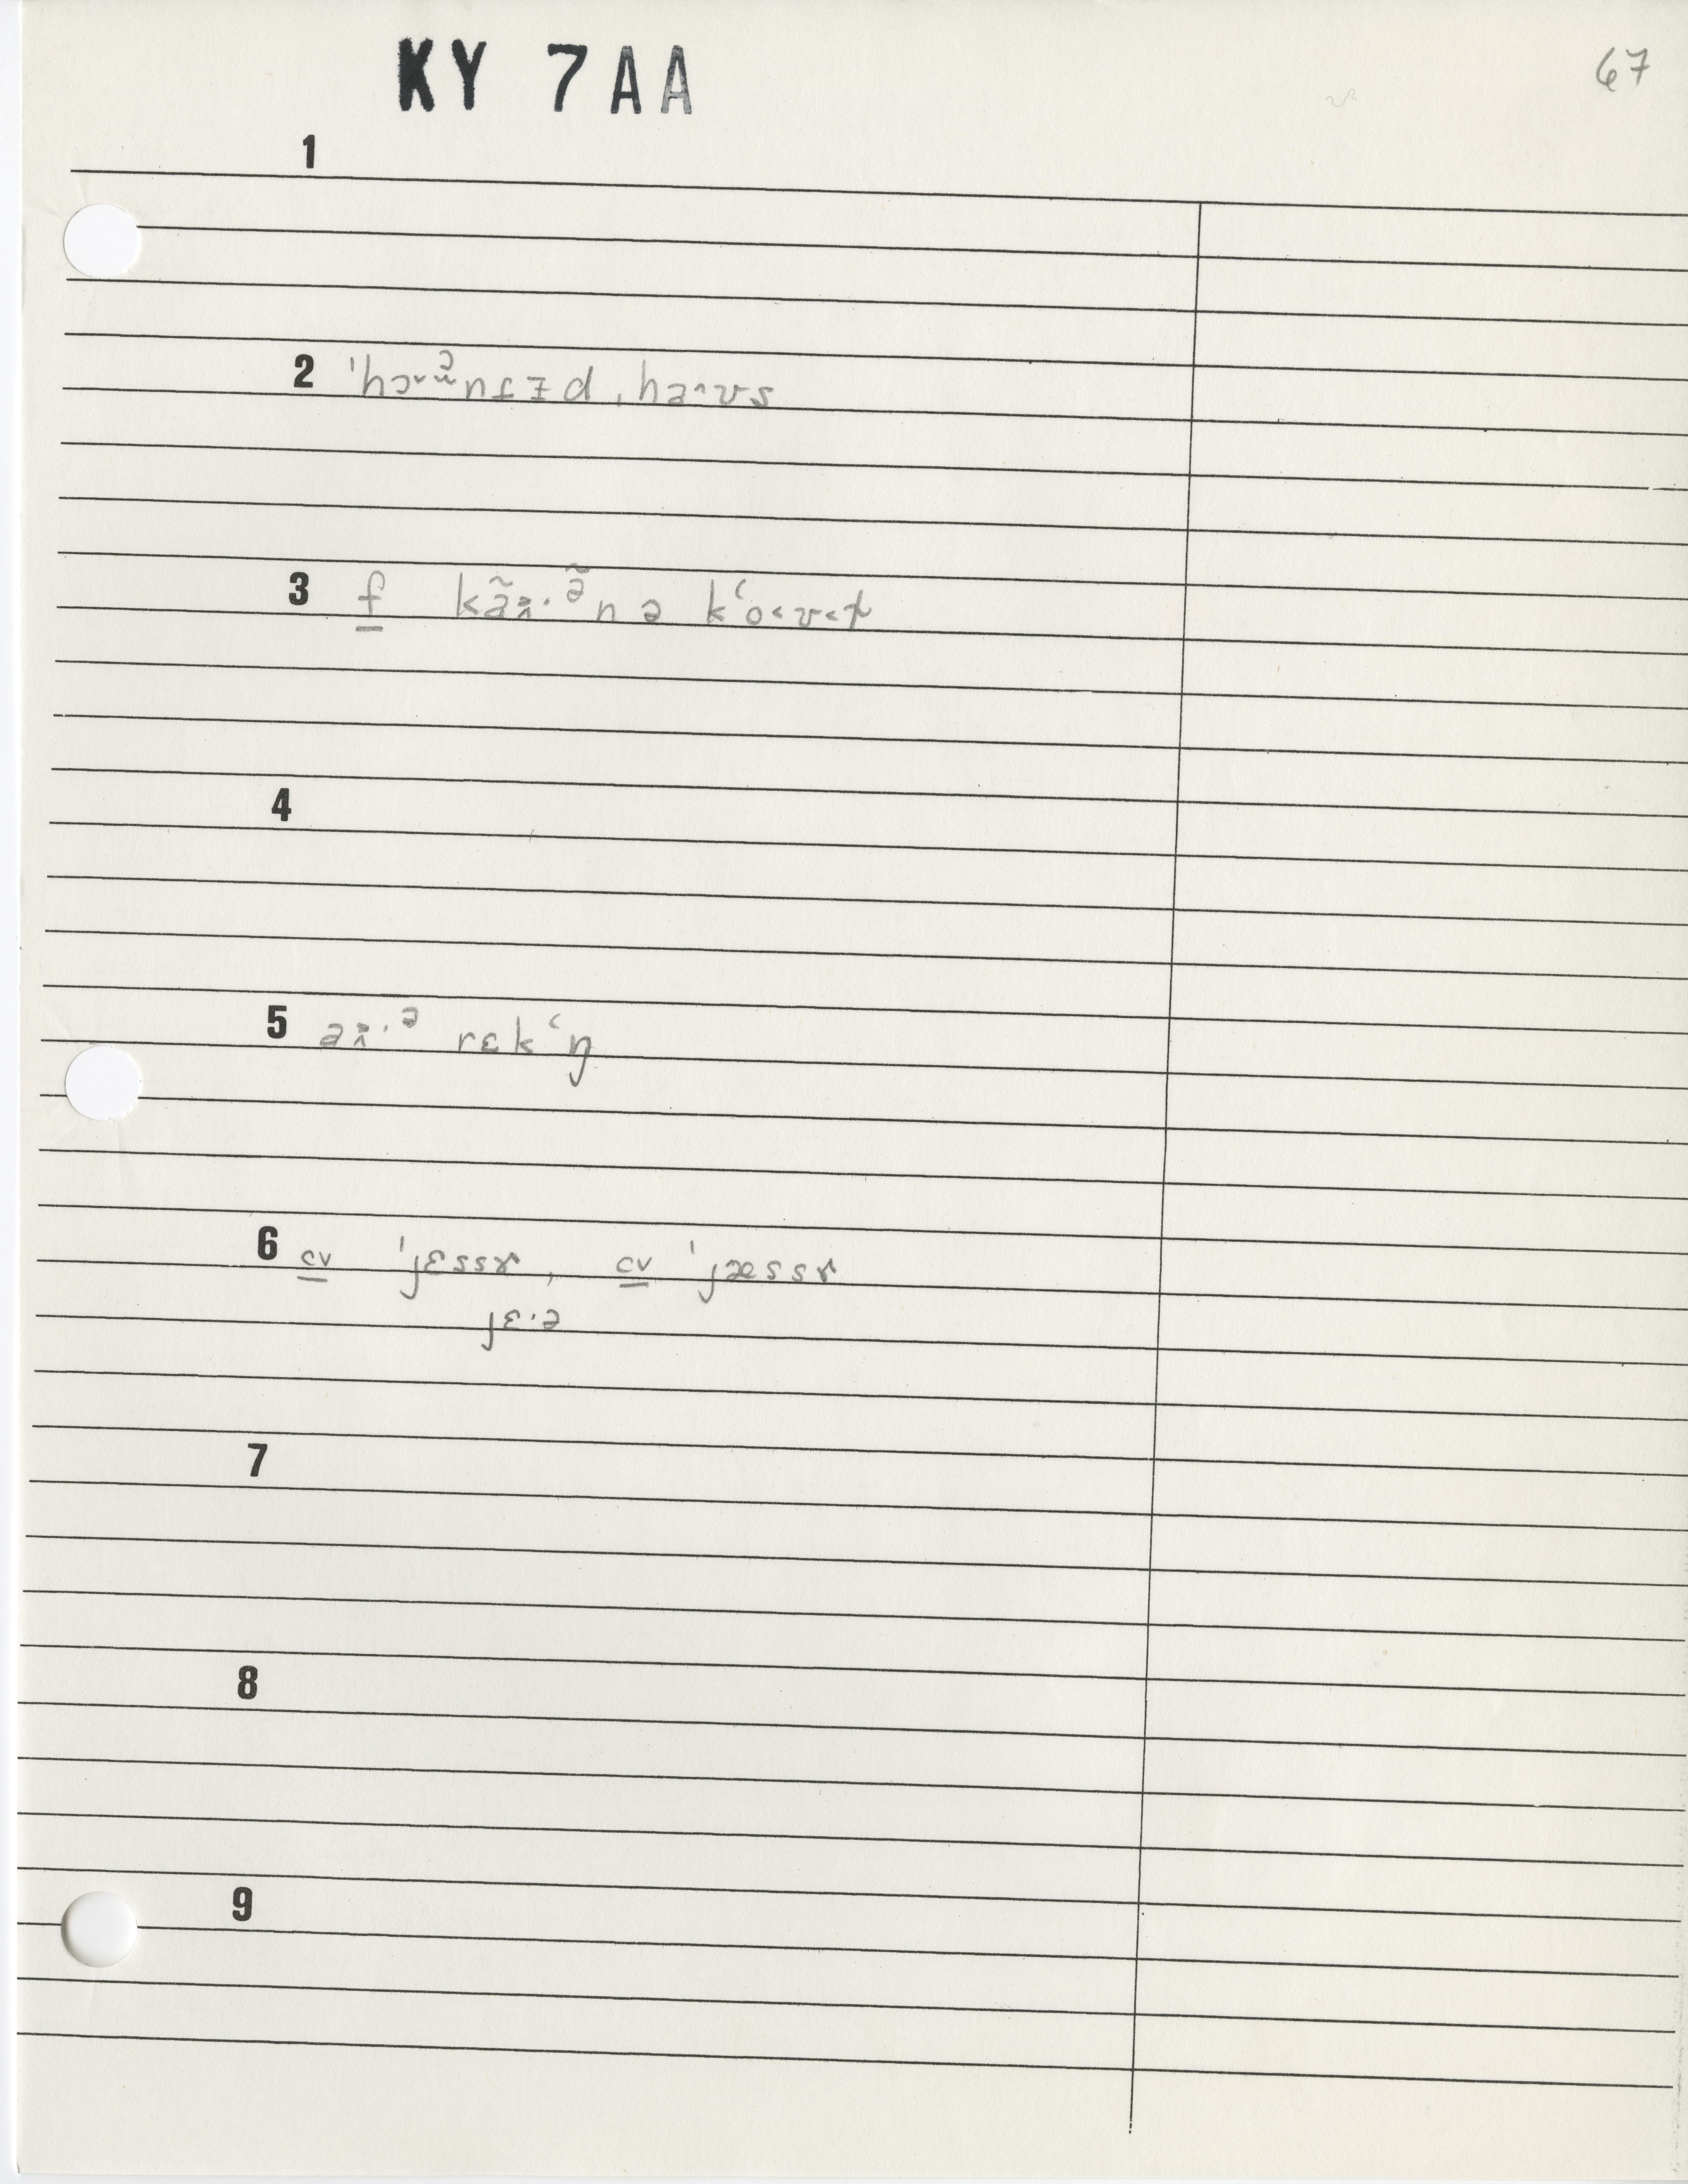 KY 7AA
67
1
2 ˈhɔ˞ᵊntɪd ˌhaʊs
3 f kãɪ·ᵊ̃n ə kʻo˂ʊ˂t
4
5 aɪ·ᵊ rɛkʻŋ
6 cv ˈjɛssɚ, cv ˈjæssɚ
jɛ·ə
7
8
9